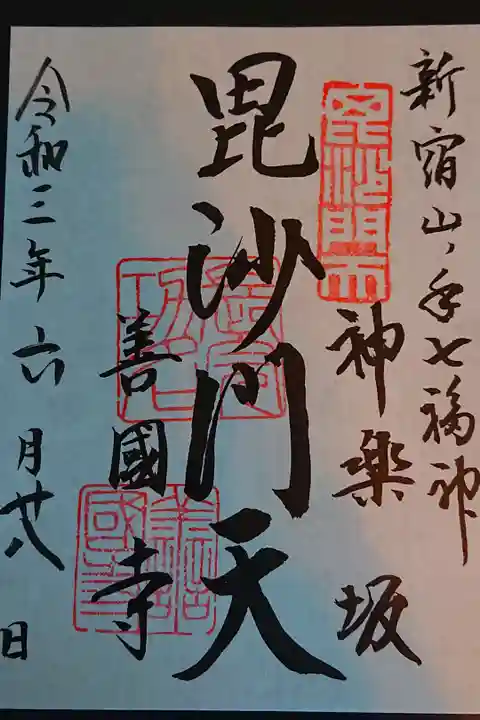 新宿山ノ手七福神
毘沙門天
神楽坂
毘沙門天
善國寺
令和三年六月廿八日